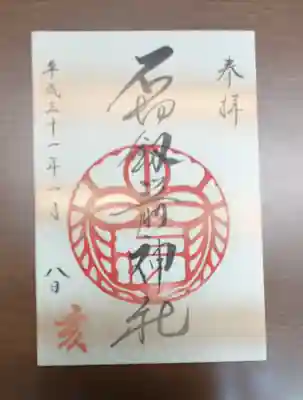 奉拝
石切剣箭神社
平成三十一年一月
八日
亥